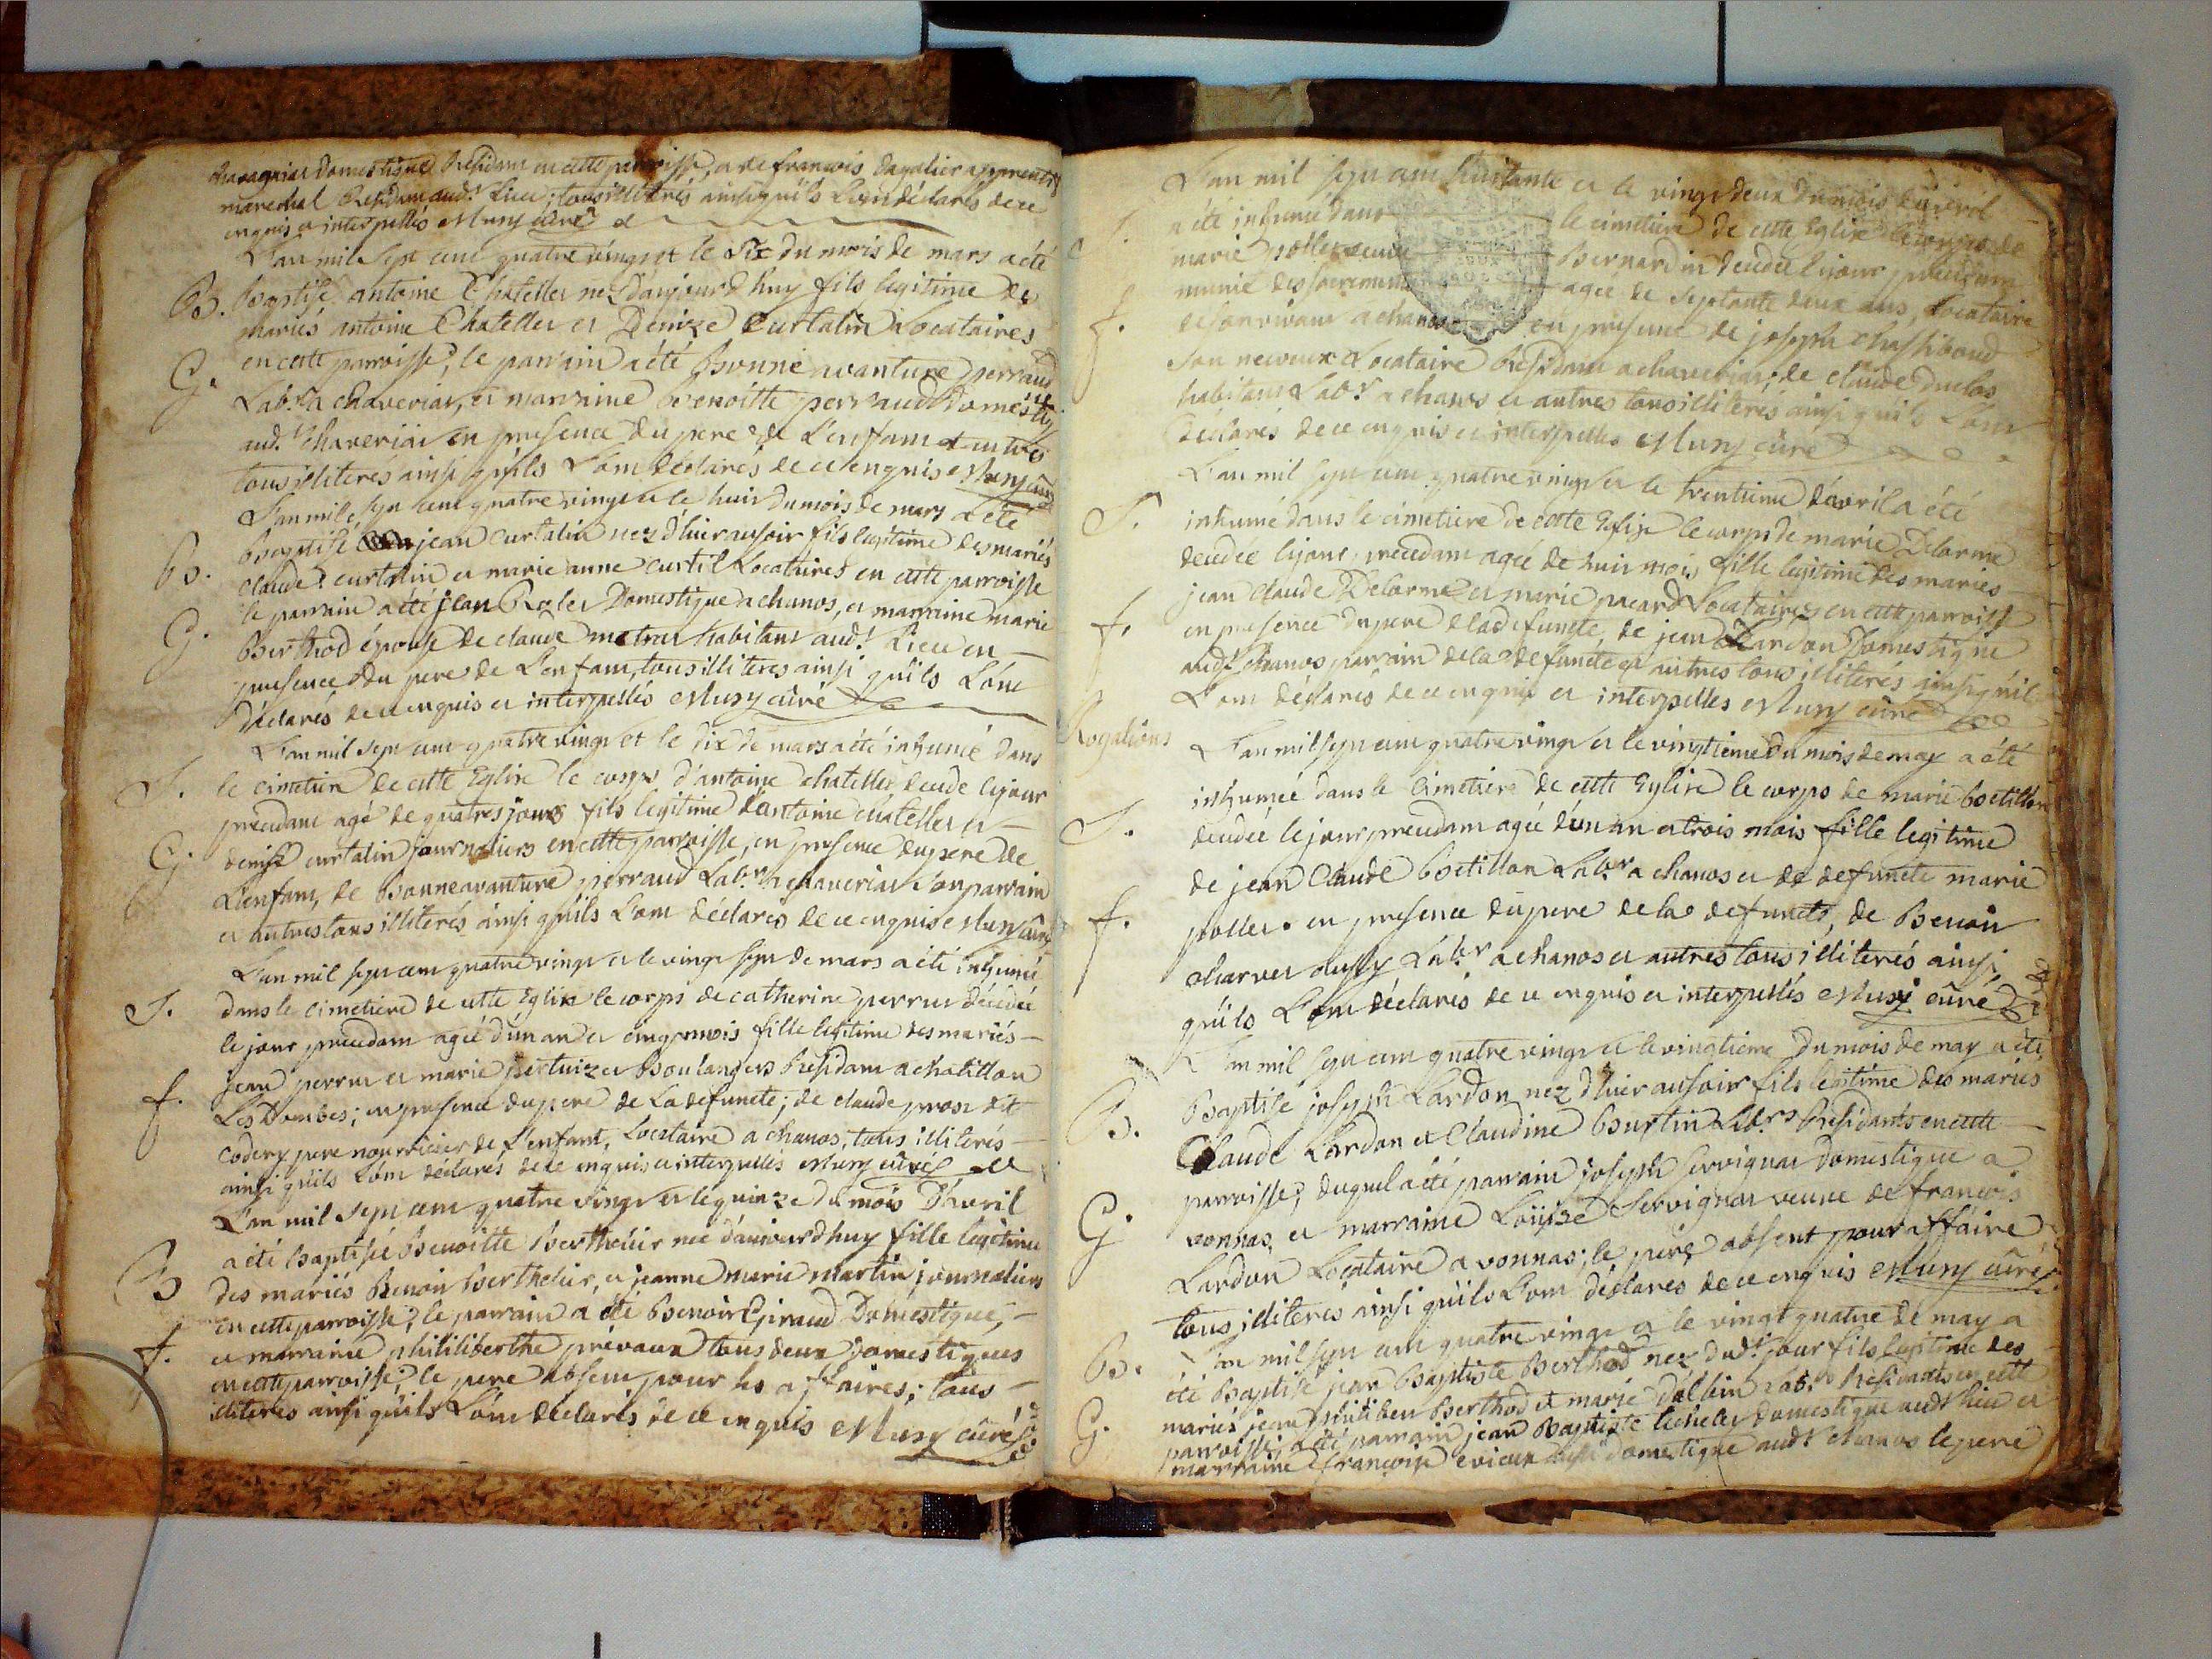 domestique Residant en cette parroisse, a de francois dagalier apprentis
marechal Residant aud.t Lieu; tous illiterés ainsi qu'ils L'ont déclarés de ce
enquis et interpellés Musy curé
L'an mil sept cent quatre vingt et le Six du mois de mars a été
B. Baptisé antoine Chateller nez d'aujourd'huy fils legitime des
mariés antoine Chateller et Denize Curtalin Locataires
en cette parroisse, le parrain a été Bonne avanture perraud
G. Lab.r a chaveriat, et marraine Benoitte perraud domestiq
aud.t chaveriat en presence du pere de L'enfant et autres
tous illiteres ainsi qu'ils L'ont déclarés de ce enquis Musy curé
L'an mil sept cent quatre vingt et le huit du mois de mars a été
Baptisé jean Curtalin nez d'hier au soir fils legitime des mariés
B. claude curtalin et marie anne curtil Locataires en cette parroisse
le parrain a été jean Domestique a chanos, et marraine marie
G. Berthod épouse de claude metras habitans aud.t Lieu en
presence du pere de L'enfant, tous illiteres ainsi qu'ils L'ont
déclarés de ce enquis et interpellés Musy curé
L'an mil sept cent quatre vingt et le dix de mars a été inhumé dans
S. le cimetiere de cette Eglise le corps d'antoine chateller decedé le jour
precedant agé de quatres jours fils legitime d'antoine chateller et
G. denise curtalin journaliers en cette parroisse, en presence du pere de
L'enfant, de Bonneavanture perraud Lab.r a chaveriat son parrain
et autres tous illiterés ainsi qu'ils L'ont déclarés de ce enquis Musy curé
L'an mil sept cent quatre vingt et le vingt sept de mars a été inhumé
S. dans le cimetiere de cette Eglise le corps de catherine perrus décédée
le jour precedant agée d'un an et cinq mois fille legitime des mariés
jean perrus et marie pertuizet Boulangers Residant a chatillon
f. Les Dombes; en presence du pere de La defuncte; de claude prost dit
codery pere nourricier de L'enfant, Locataire a chanos, tous illiterés
ainsi qu'ils L'ont déclarés de ce enquis et interpellés Musy curé
L'an mil sept cent quatre vingt et le quinze du mois d'avril
a été Baptisée Benoitte Berthelier née d'aujourd'huy fille legitime
B des mariés Benoit Berthelier, et jeanne marie martin journaliers
en cette parroisse; le parrain a été Benoit Giraud Domestique,
f. et marraine philiberthe prévaux tous deux domestiques
en cette parroisse; le pere absent pour les affaires; tous
illiterés ainsi qu'ils L'ont declarés de ce enquis Musy curé
L'an mil sept cent huitante et le vingt deux du mois d'avril
S. a été inhumé dans le cimetiere de cette Eglise le corps de
marie veuve Bernardin decedée le jour precedant
munie des sacremens agée de septante deux ans, Locataire
f. de son vivant a chanos en presence de joseph
son neveux Locataire Residant a chaveriat; de claude Duclos
habitant Lab.r a chanos et autres tous illiterés ainsi qu'ils L'ont
déclarés de ce enquis et interpellés Musy curé
L'an mil sept cent quatre vingt et le trentieme d'avril a été
S. inhumé dans le cimetiere de cette Eglise le corps de marie Delorme
decedée le jour precedant agée de huit mois fille legitime des mariés
jean claude Delorme et marie pacard Locataires en cette parroisse
f. en presence du pere de la defuncte, de jean Lardon Domestique
aud.t chanos parrain de la defuncte et autres tous illiterés ainsi qu'il
L'ont déclarés de ce enquis et interpelles Musy curé
Rogations L'an mil sept cent quatre vingt et le vingtieme du mois de may a été
inhumée dans le cimetiere de cette Eglise le corps de marie Botillon
S. decedée le jour precedant agée d'un an et trois mois fille legitime
de jean Claude Botillon Lab.r a chanos et de defuncte marie
f. pollet. en presence du pere de la defuncte, de Benoit
charvet aussy Lab.r a chanos et autres tous illiterés ainsi
qu'ils L'ont déclarés de ce enquis et interpellés Musy curé
L'an mil sept cent quatre vingt et le vingtieme du mois de may a été
Baptisé joseph Lardon nez d'hier au soir fils legitime des mariés
B. Claude Lardon et Claudine Burtin Lab.rs Residants en cette
parroisse; duquel a été parrain joseph servignat domestique a
G vonnas, et marraine Loüise Servignat veuve de francois
Lardon Locataire a vonnas; le pere absent pour affaire
tous illiteres ainsi qu'ils L'ont déclarés de ce enquis Musy curé
B. L'an mil sept cent quatre vingt et le vingt quatre de may a
été Baptisé jean Baptiste Berthod nez dud.t jour fils legitime des
mariés jean philibert Berthod et marie dalbin Lab.rs Residants en cette
G. parroisse, a été parrain jean Baptiste domestique aud.t lieu et
marraine francoise evieux aussi domestique aud.t chanos le pere